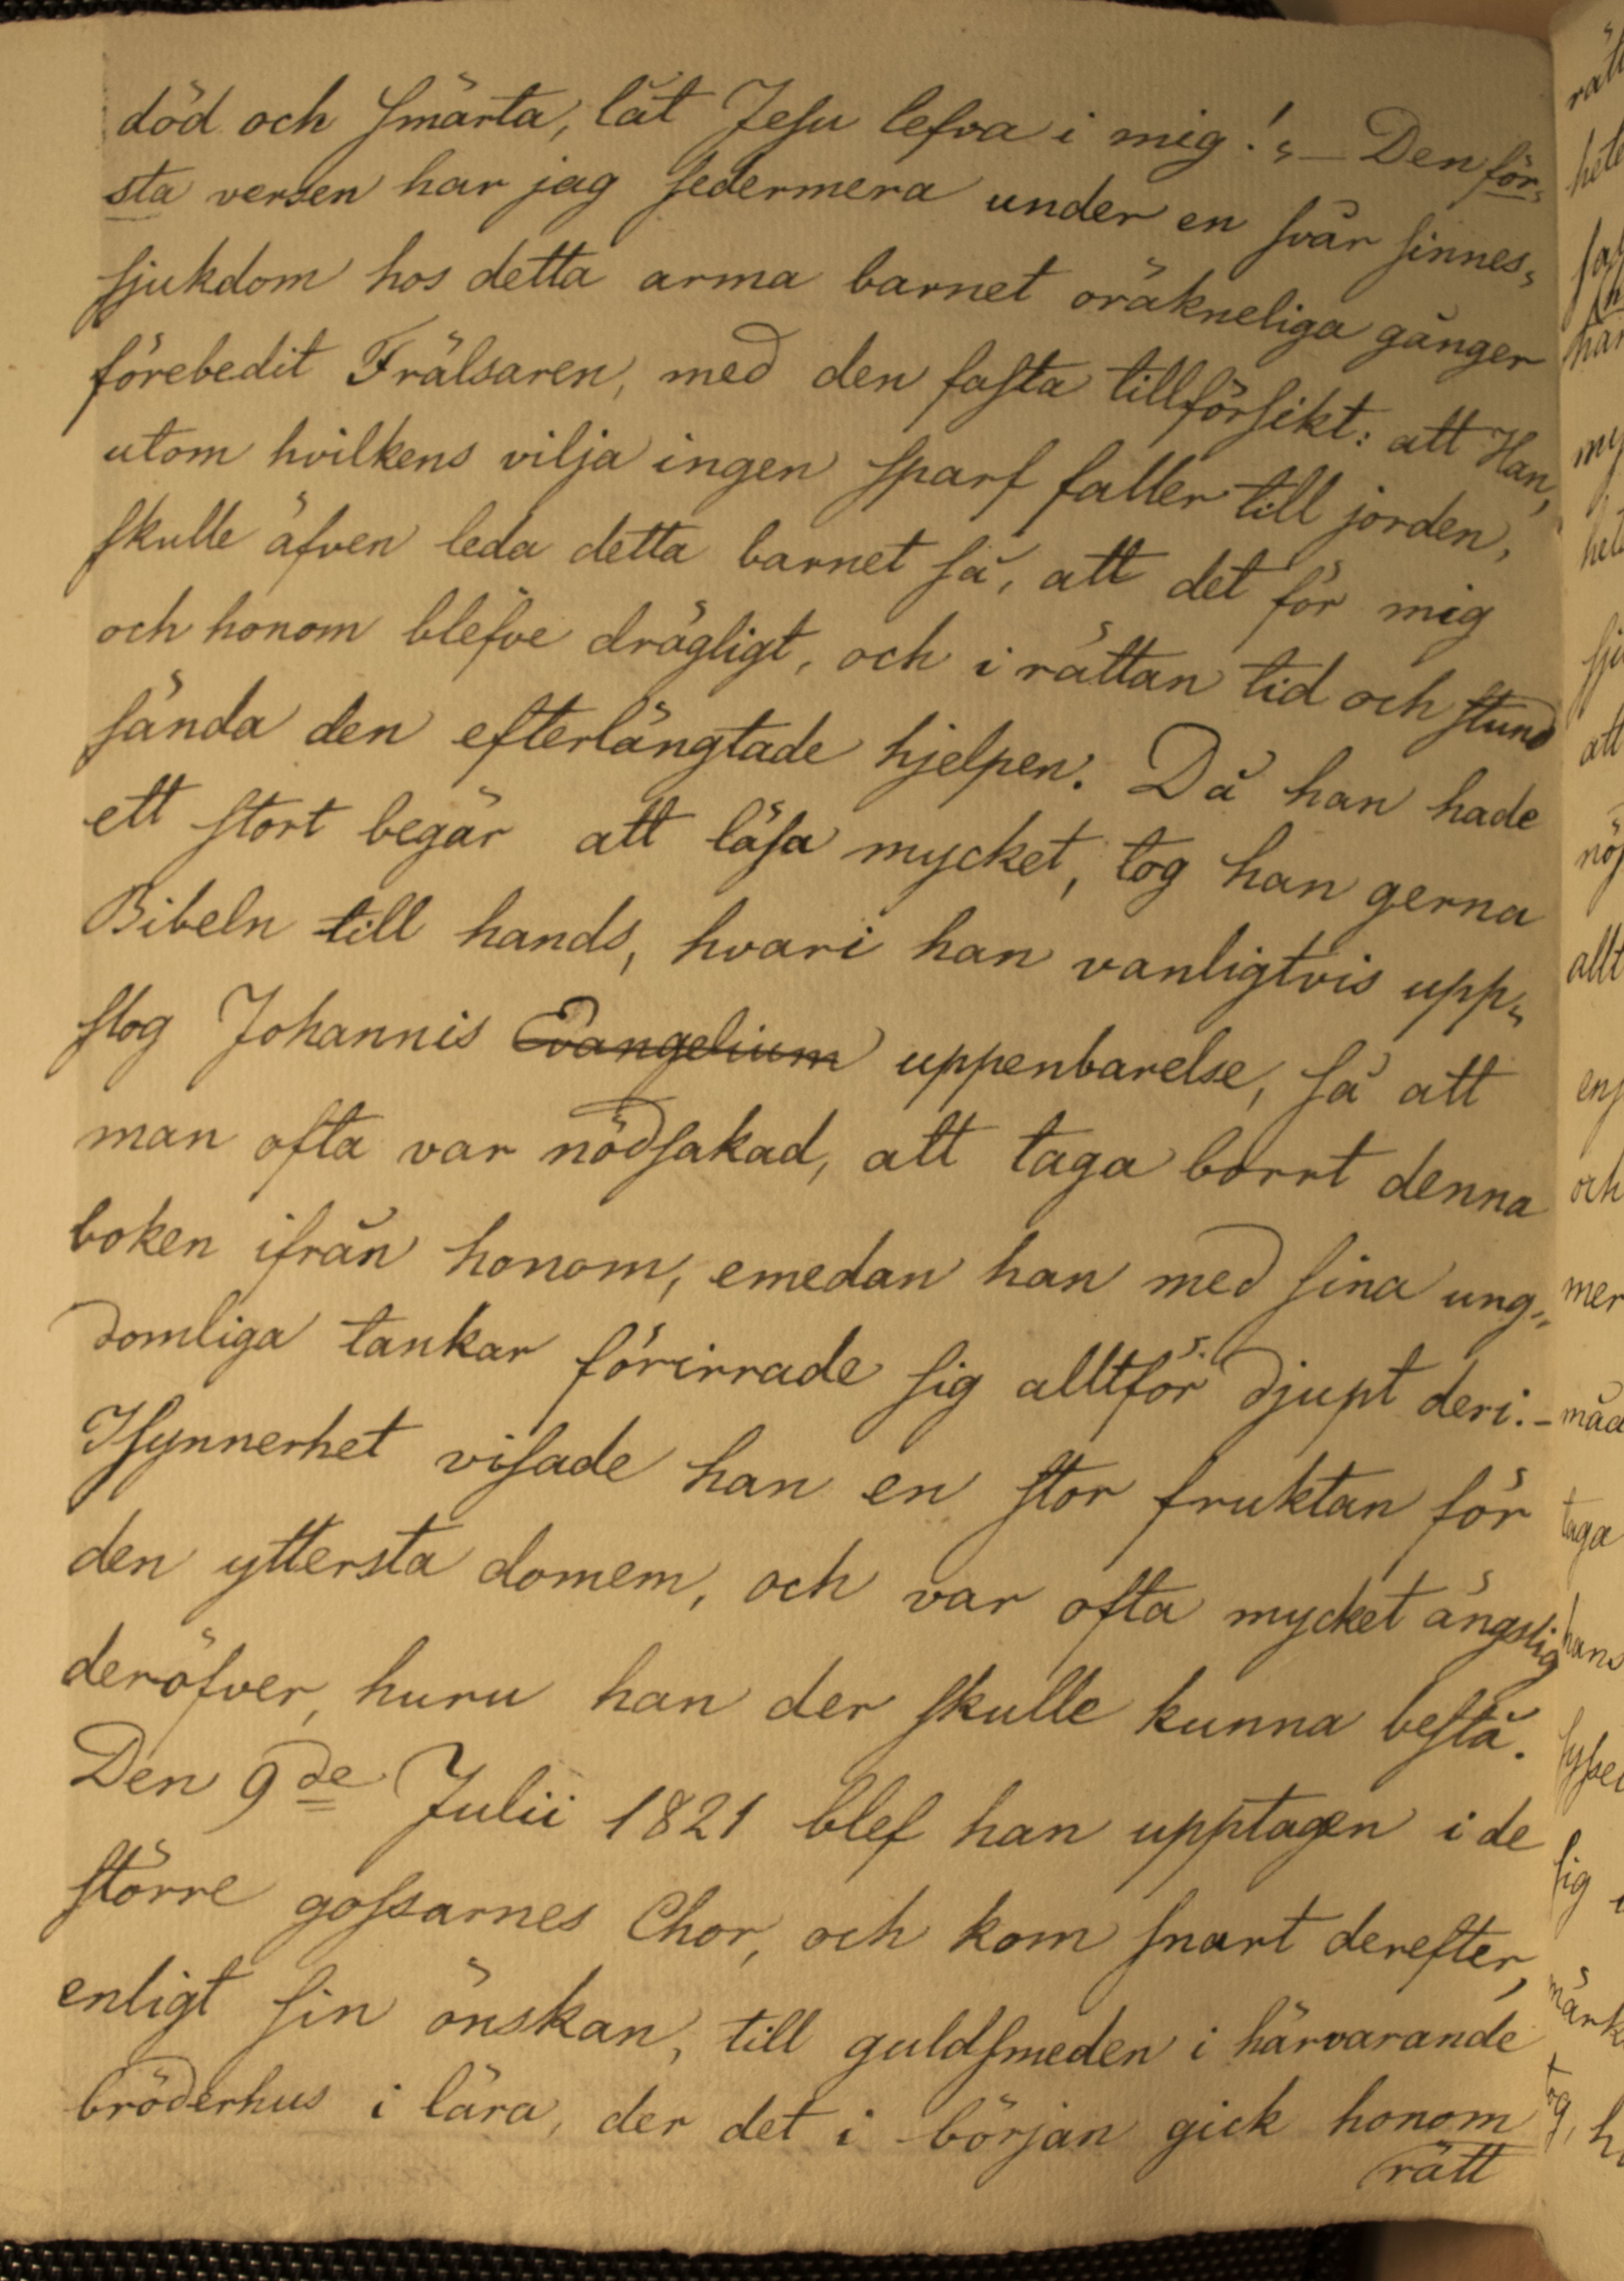 död och smärta, låt Jesu lefva i mig!„ – Den för„
sta versen har jag sedermera under en svår sinnes„
sjukdom hos detta arma barnet oräkneliga gånger
förebedit Frälsaren, med den fasta tillförsikt: att Han,
utom hvilkens vilja ingen sparf faller till jorden,
skulle äfven leda detta barnet så, att det för mig
och honom blefve drägligt, och i rättan tid och stund
sända den efterlängtade hjelpen. Då han hade
ett stort begär att läsa mycket, tog han gerna
Bibeln till hands, hvari han vanligtvis upp„
slog Johannis Evangelium uppenbarelse, så att
man ofta var nödsakad, att taga borrt denna
boken ifrån honom, emedan han med sina ung„
domliga tankar förirrade sig alltför djupt deri. –
Isynnerhet visade han en stor fruktan för
den yttersta domem, och var ofta mycket ängslig
deröfver, huru han der skulle kunna bestå.
Den 9de Julii 1821 blef han upptagen i de
större gossarnes Chor, och kom snart derefter,
enligt sin önskan, till guldsmeden i härvarande
bröderhus i lära, der det i början gick honom
rätt